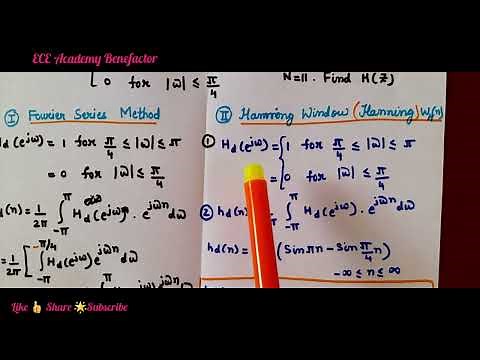 ECE Academy Benefactor
0 for |ω| ≤ π/4
N=11. Find H(Z)
I Fourier Series Method
d(e^jω) = 1 for π/4 ≤ |ω| ≤ π
= 0 for |ω| ≤ π/4
d(n) = 1/2π ∫_-π^π Hd(e^jω). e^jωn dω
= 1/2π [ ∫_-π^-π/4 Hd(e^jω) e^jωn dω
II Hanning Window (Hanning) W(n)
1 Hd(e^jω) = { 1 for π/4 ≤ |ω| ≤ π
= 0 for |ω| ≤ π/4
2 hd(n) = ∫_-π^π Hd(e^jω). e^jωn dω
hd(n) = (Sin πn - Sin π/4 n)
-∞ ≤ n ≤ ∞
Like 👍 Share 🌟Subscribe